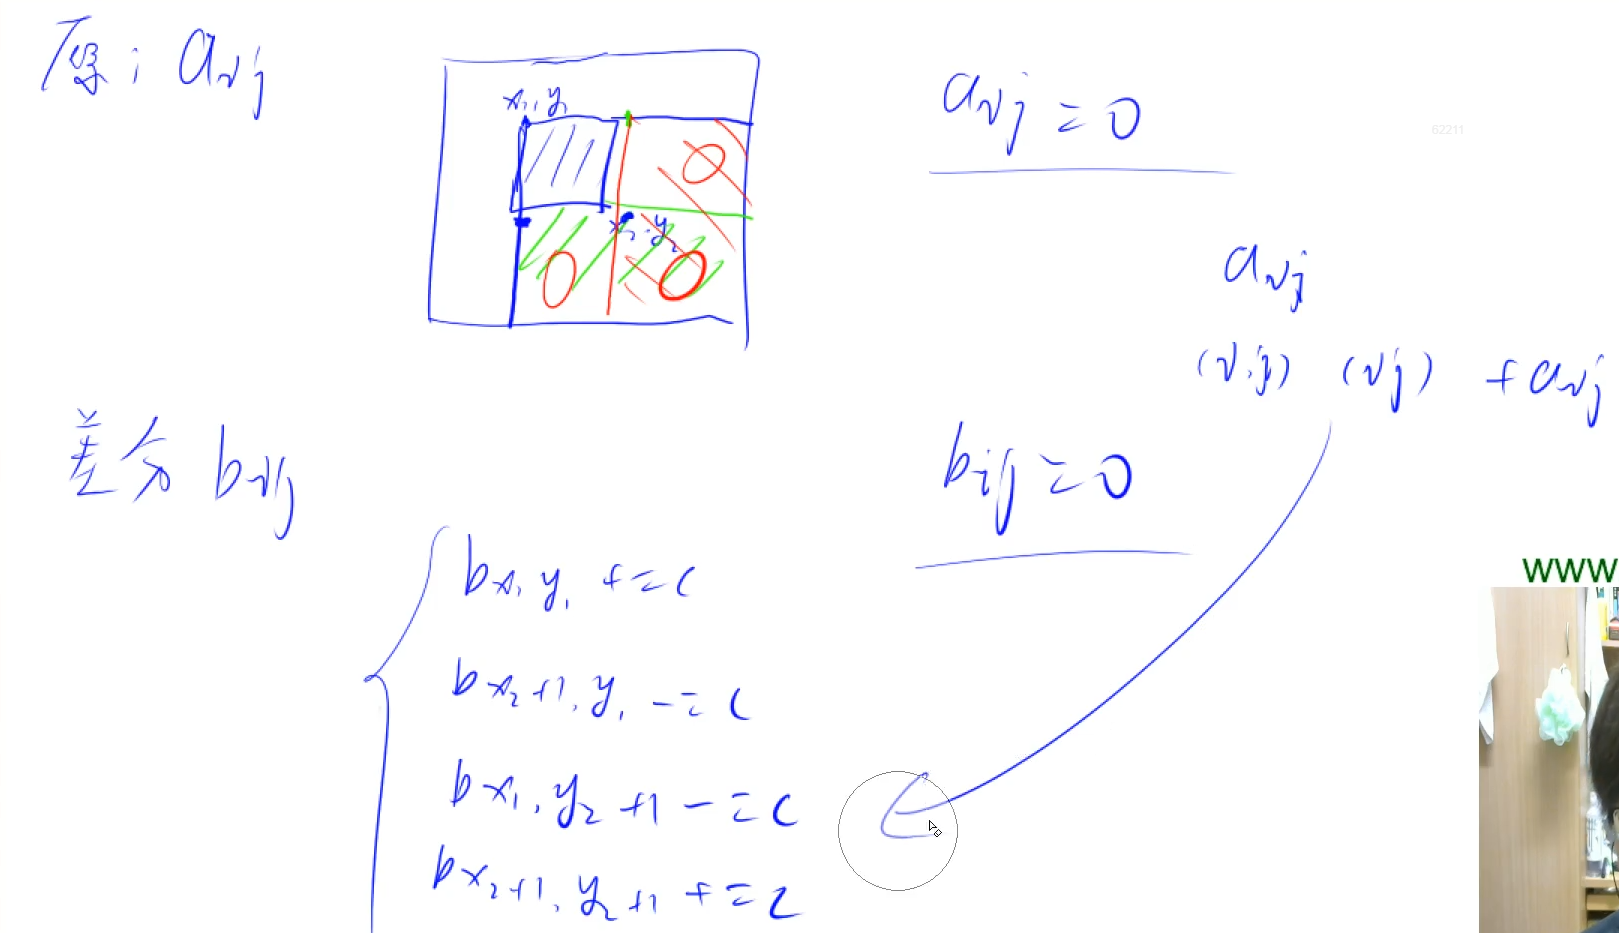 原: aij
x1, y1
x2, y2
aij = 0
62211
aij
(i, j) (i, j) + aij
差分 bij
bij = 0
bx1, y1 += c
bx2+1, y1 -= c
bx1, y2+1 -= c
bx2+1, y2+1 += c
www